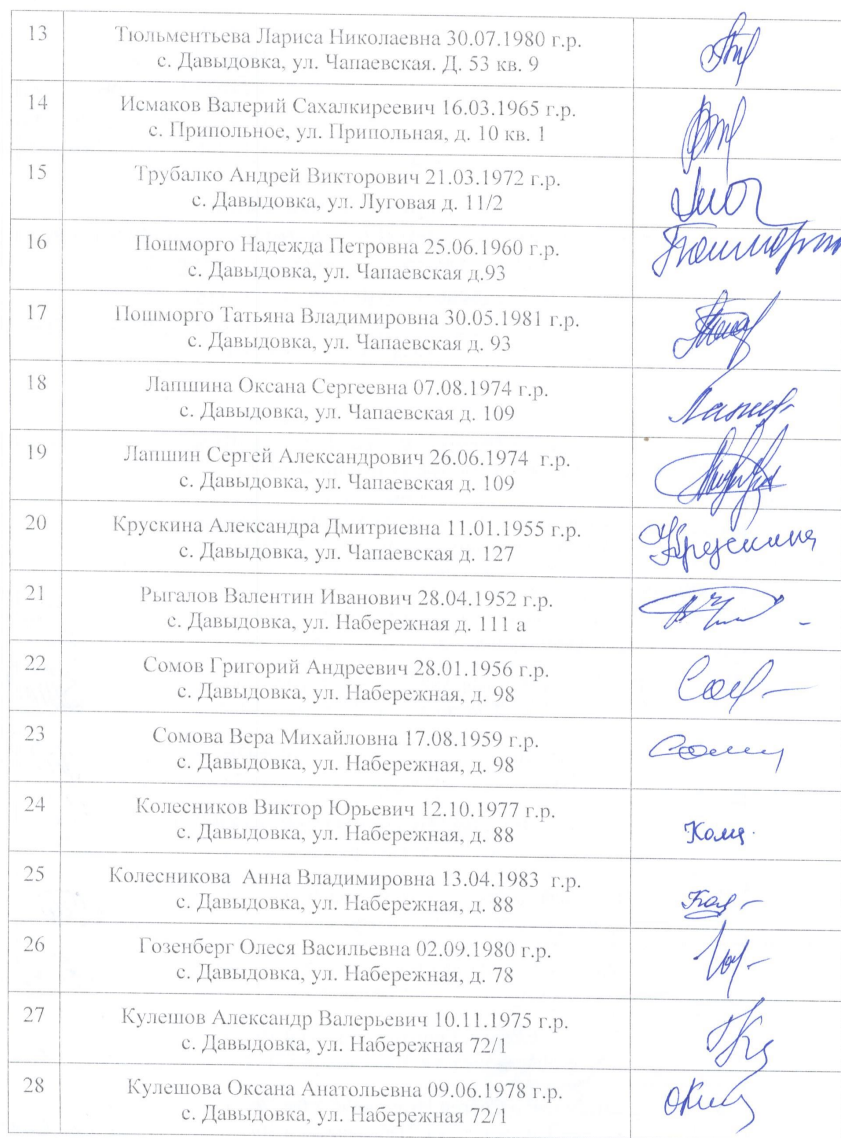 13 Тюльментьева Лариса Николаевна 30.07.1980 г.р.
с. Давыдовка, ул. Чапаевская. Д. 53 кв. 9
14 Исмаков Валерий Сахалкиреевич 16.03.1965 г.р.
с. Припольное, ул. Припольная, д. 10 кв. 1
15 Трубалко Андрей Викторович 21.03.1972 г.р.
с. Давыдовка, ул. Луговая д. 11/2
16 Пошморго Надежда Петровна 25.06.1960 г.р.
с. Давыдовка, ул. Чапаевская д.93
17 Пошморго Татьяна Владимировна 30.05.1981 г.р.
с. Давыдовка, ул. Чапаевская д. 93
18 Лапшина Оксана Сергеевна 07.08.1974 г.р.
с. Давыдовка, ул. Чапаевская д. 109
19 Лапшин Сергей Александрович 26.06.1974 г.р.
с. Давыдовка, ул. Чапаевская д. 109
20 Крускина Александра Дмитриевна 11.01.1955 г.р.
с. Давыдовка, ул. Чапаевская д. 127
21 Рыгалов Валентин Иванович 28.04.1952 г.р.
с. Давыдовка, ул. Набережная д. 111 а
22 Сомов Григорий Андреевич 28.01.1956 г.р.
с. Давыдовка, ул. Набережная, д. 98
23 Сомова Вера Михайловна 17.08.1959 г.р.
с. Давыдовка, ул. Набережная, д. 98
24 Колесников Виктор Юрьевич 12.10.1977 г.р.
с. Давыдовка, ул. Набережная, д. 88
25 Колесникова Анна Владимировна 13.04.1983 г.р.
с. Давыдовка, ул. Набережная, д. 88
26 Гозенберг Олеся Васильевна 02.09.1980 г.р.
с. Давыдовка, ул. Набережная, д. 78
27 Кулешов Александр Валерьевич 10.11.1975 г.р.
с. Давыдовка, ул. Набережная 72/1
28 Кулешова Оксана Анатольевна 09.06.1978 г.р.
с. Давыдовка, ул. Набережная 72/1